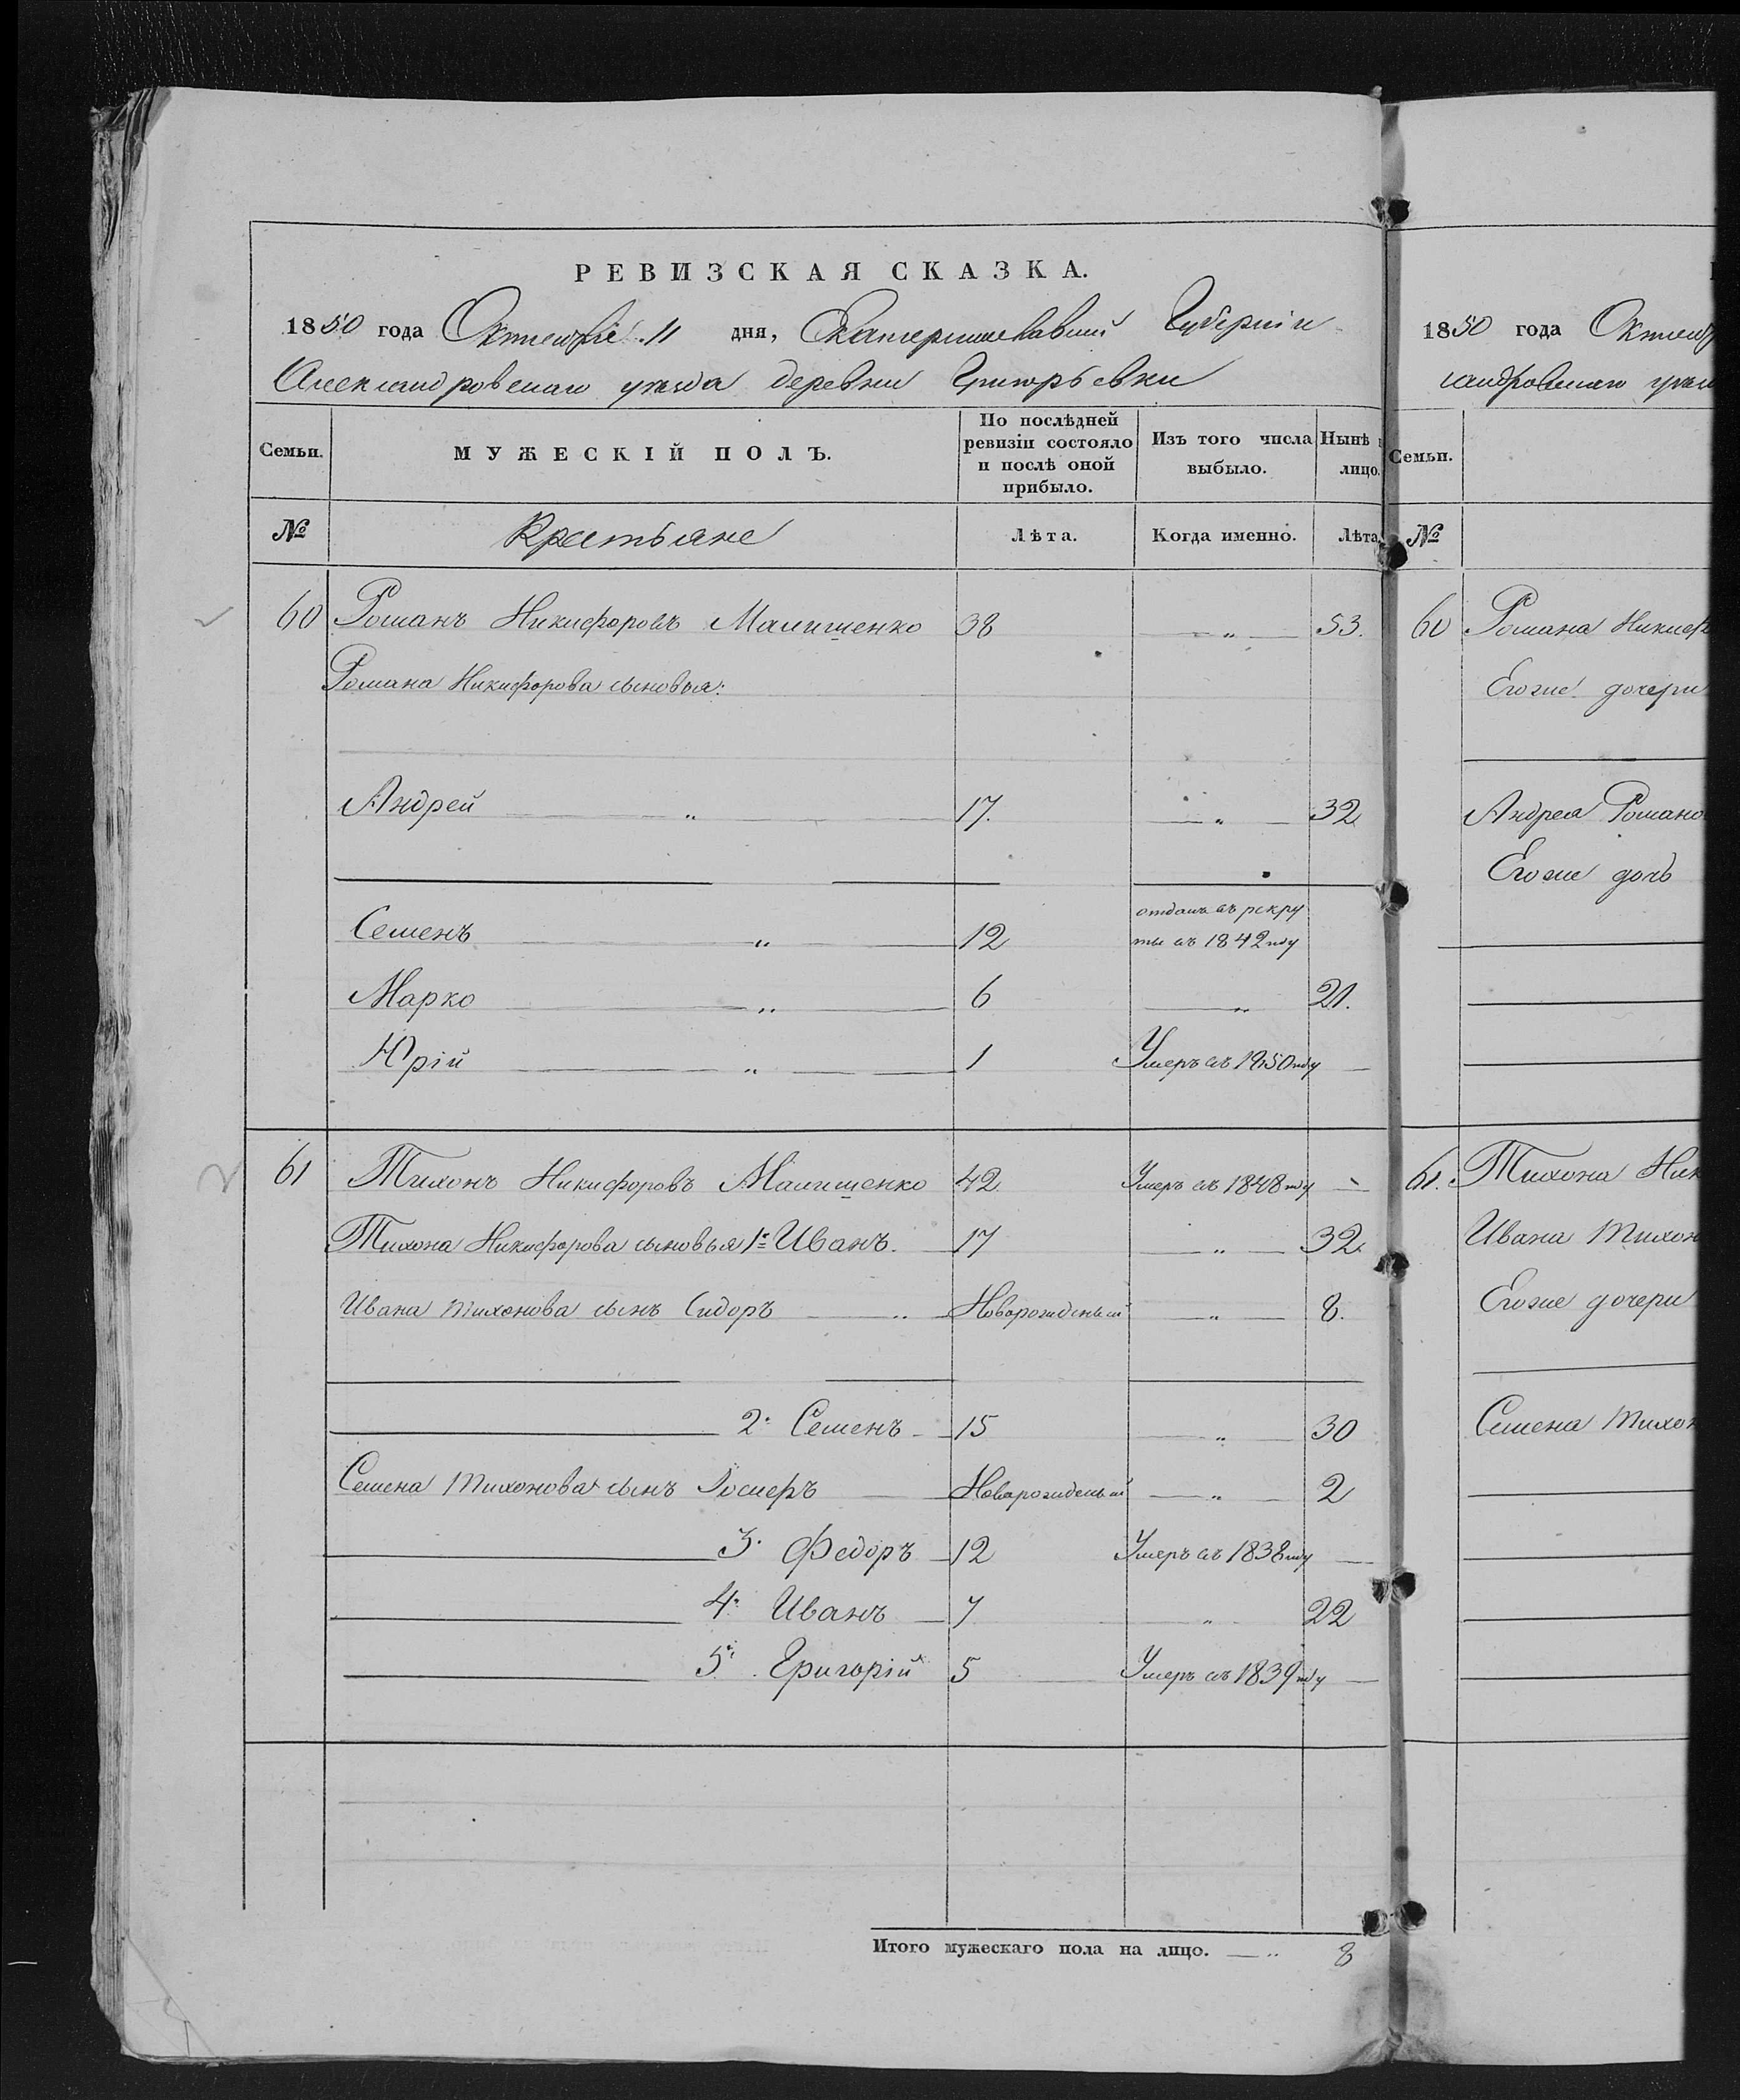 РЕВИЗСКАЯ СКАЗКА.
1850 года Октября 11 дня, Екатеринославской Губернии
Александровскаго уезда деревни
Семьи.
МУЖЕСКІЙ ПОЛЪ.
По послѣдней ревизіи состояло и послѣ оной прибыло.
Изъ того числа выбыло.
Нынѣ
лицо.
№
Крестьяне
Лѣта.
Когда именно.
Лѣта
60 Романъ Никифоровъ Малишенко 38 „ 53.
Романа Никифорова сыновья:
Андрей „ 17. „ 32
Семенъ „ 12 отданъ въ рекру
ты въ 1842 году
Марко „ 6 „ 21.
Юрій „ 1 Умеръ въ 1850 году
61 Тихонъ Никифоровъ Малишенко 42 Умеръ въ 1848 году
Тихона Никифорова сыновья 1й Иванъ. 17 „ 32.
Ивана Тихонова сынъ Сидоръ „ Новорожденый „ 8.
2. Семенъ 15 „ 30
Семена Тихонова сынъ Новорожденый „ 2
3. Федоръ 12 Умеръ въ 1838 году
4. Иванъ 7 „ 22
5. Григорій 5 Умеръ въ 1839 году
Итого мужескаго пола на лицо. „ 8
1850 года
Семьи.
№
60 Романа
Егоже дочери
Андрея
Егоже дочь
61. Тихона
Ивана
Егоже дочери
Семена